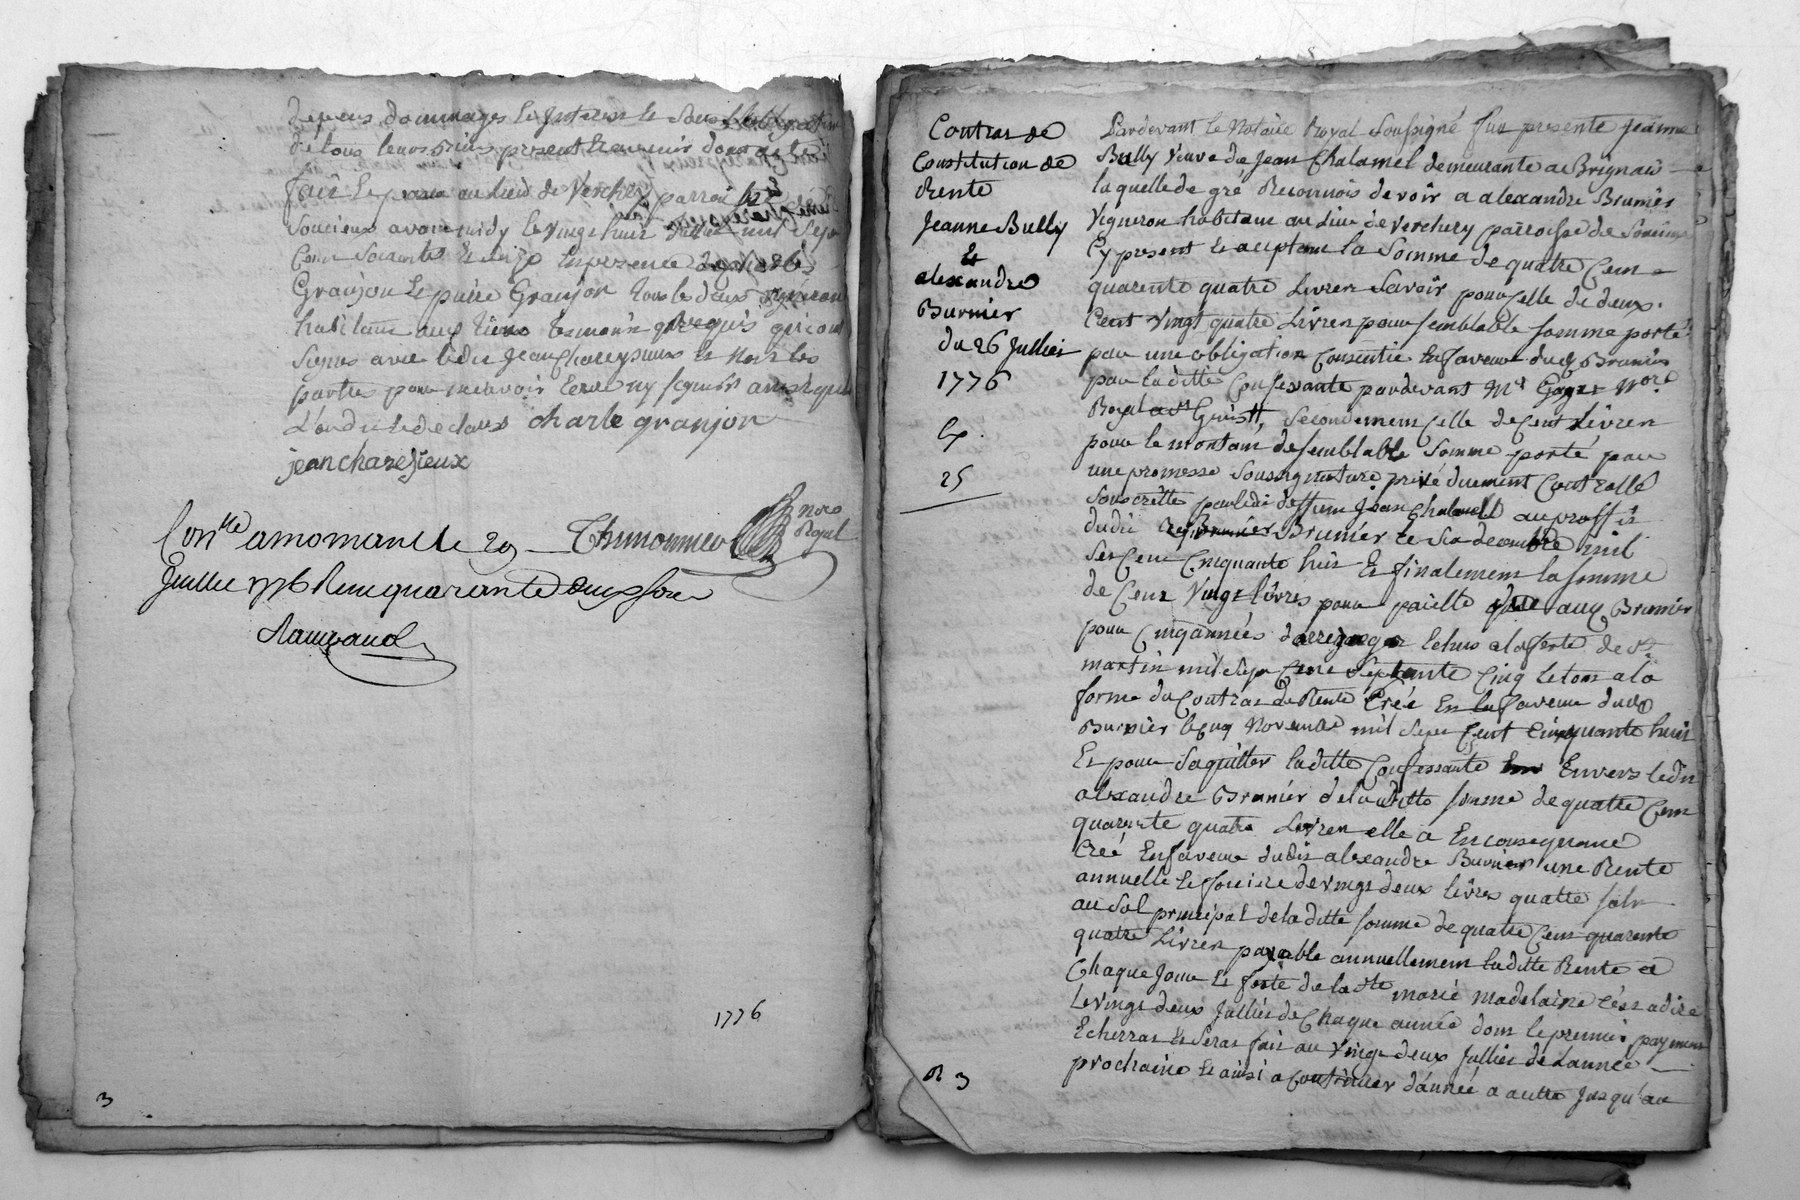 depens dommages et Interest et sous l'obligation
de tous leurs biens present et avenir dont acte
fait et passé au lieu de Verchery parroisse de
Soucieux avant midy le vingt huit Juillet mil sept
Cent Soixante et seize En presence de charles
Granjon et pierre Granjon tous les deux vigneron
habitant aux lieux temoins requis qui ont
signés avec ledit jean Chareysieux et Non les
parties pour ne scavoir Ecrire ny signer
charle granjon
jean charezieux
Thimonnier
Noro
Royal
Con.lle a mornant le 29
Juillet 1776 Recu quarante deux sous
1776
3
Contrat de
Constitution de
Rente
Jeanne Bully
Et
alexandre
Burnier
du 26 Juillier
1776
25
Pardevant le Notaire Royal Soussigné fut presente Jeanne
Bully veuve de Jean Chalamel demeurante a Brignais
laquelle de gré Reconnois devoir a alexandre Brunier
Vigneron habitant au Lieu de verchery parroisse de Soucieux
Cy present et acceptant la Somme de quatre Cent
quarente quatre Livres Savoir pour Celle de deux
Cent vingt quatre Livres pour semblable somme porté
par une obligation Consentie En faveur dud Brunier
par laditte Confessante pardevant Me Nore
Royal a St Genis, Secondement Celle de Cent Livres
pour le montant de semblable Somme porté par
une promesse Sous signature privé duement Controllé
Souscritte par ledit deffunt Jean Chalamel au proffit
dudit Brunier le Six decembre mil
Set Cent Cinquante huit Et finalement la somme
de Cent Vingt livres pour pareille düe aud Brunier
pour Cinq années d'arrerages Echus a la feste de St
martin mil Sept Cent Septante Cinq Et ton a la
forme du Contrat de Rente Créé En la faveur dud
Burnier le Cinq Novembre mil Sept Cent Cinquante huit
Et pour S'aquitter laditte Confessante Envers ledit
alexandre Brunier de laditte somme de quatre Cent
quarente quatre Livres elle a En consequence
Créé En faveur dudit alexandre Burnier une Rente
annuelle et fonciere de vingt deux livres quatre sols
au Sol principal de laditte somme de quatre Cent quarente
quatre Livres payable annuellement laditte Rente a
Chaque Jour et feste de la Ste marie Madelaine C'est a dire
le vingt deux Jullier de Chaque année dont le premier payement
Echerras et Seras fait au vingt deux Jullier de L'année
prochaine et ainsi a Continuer d'année a autre Jusqu'au
R 3